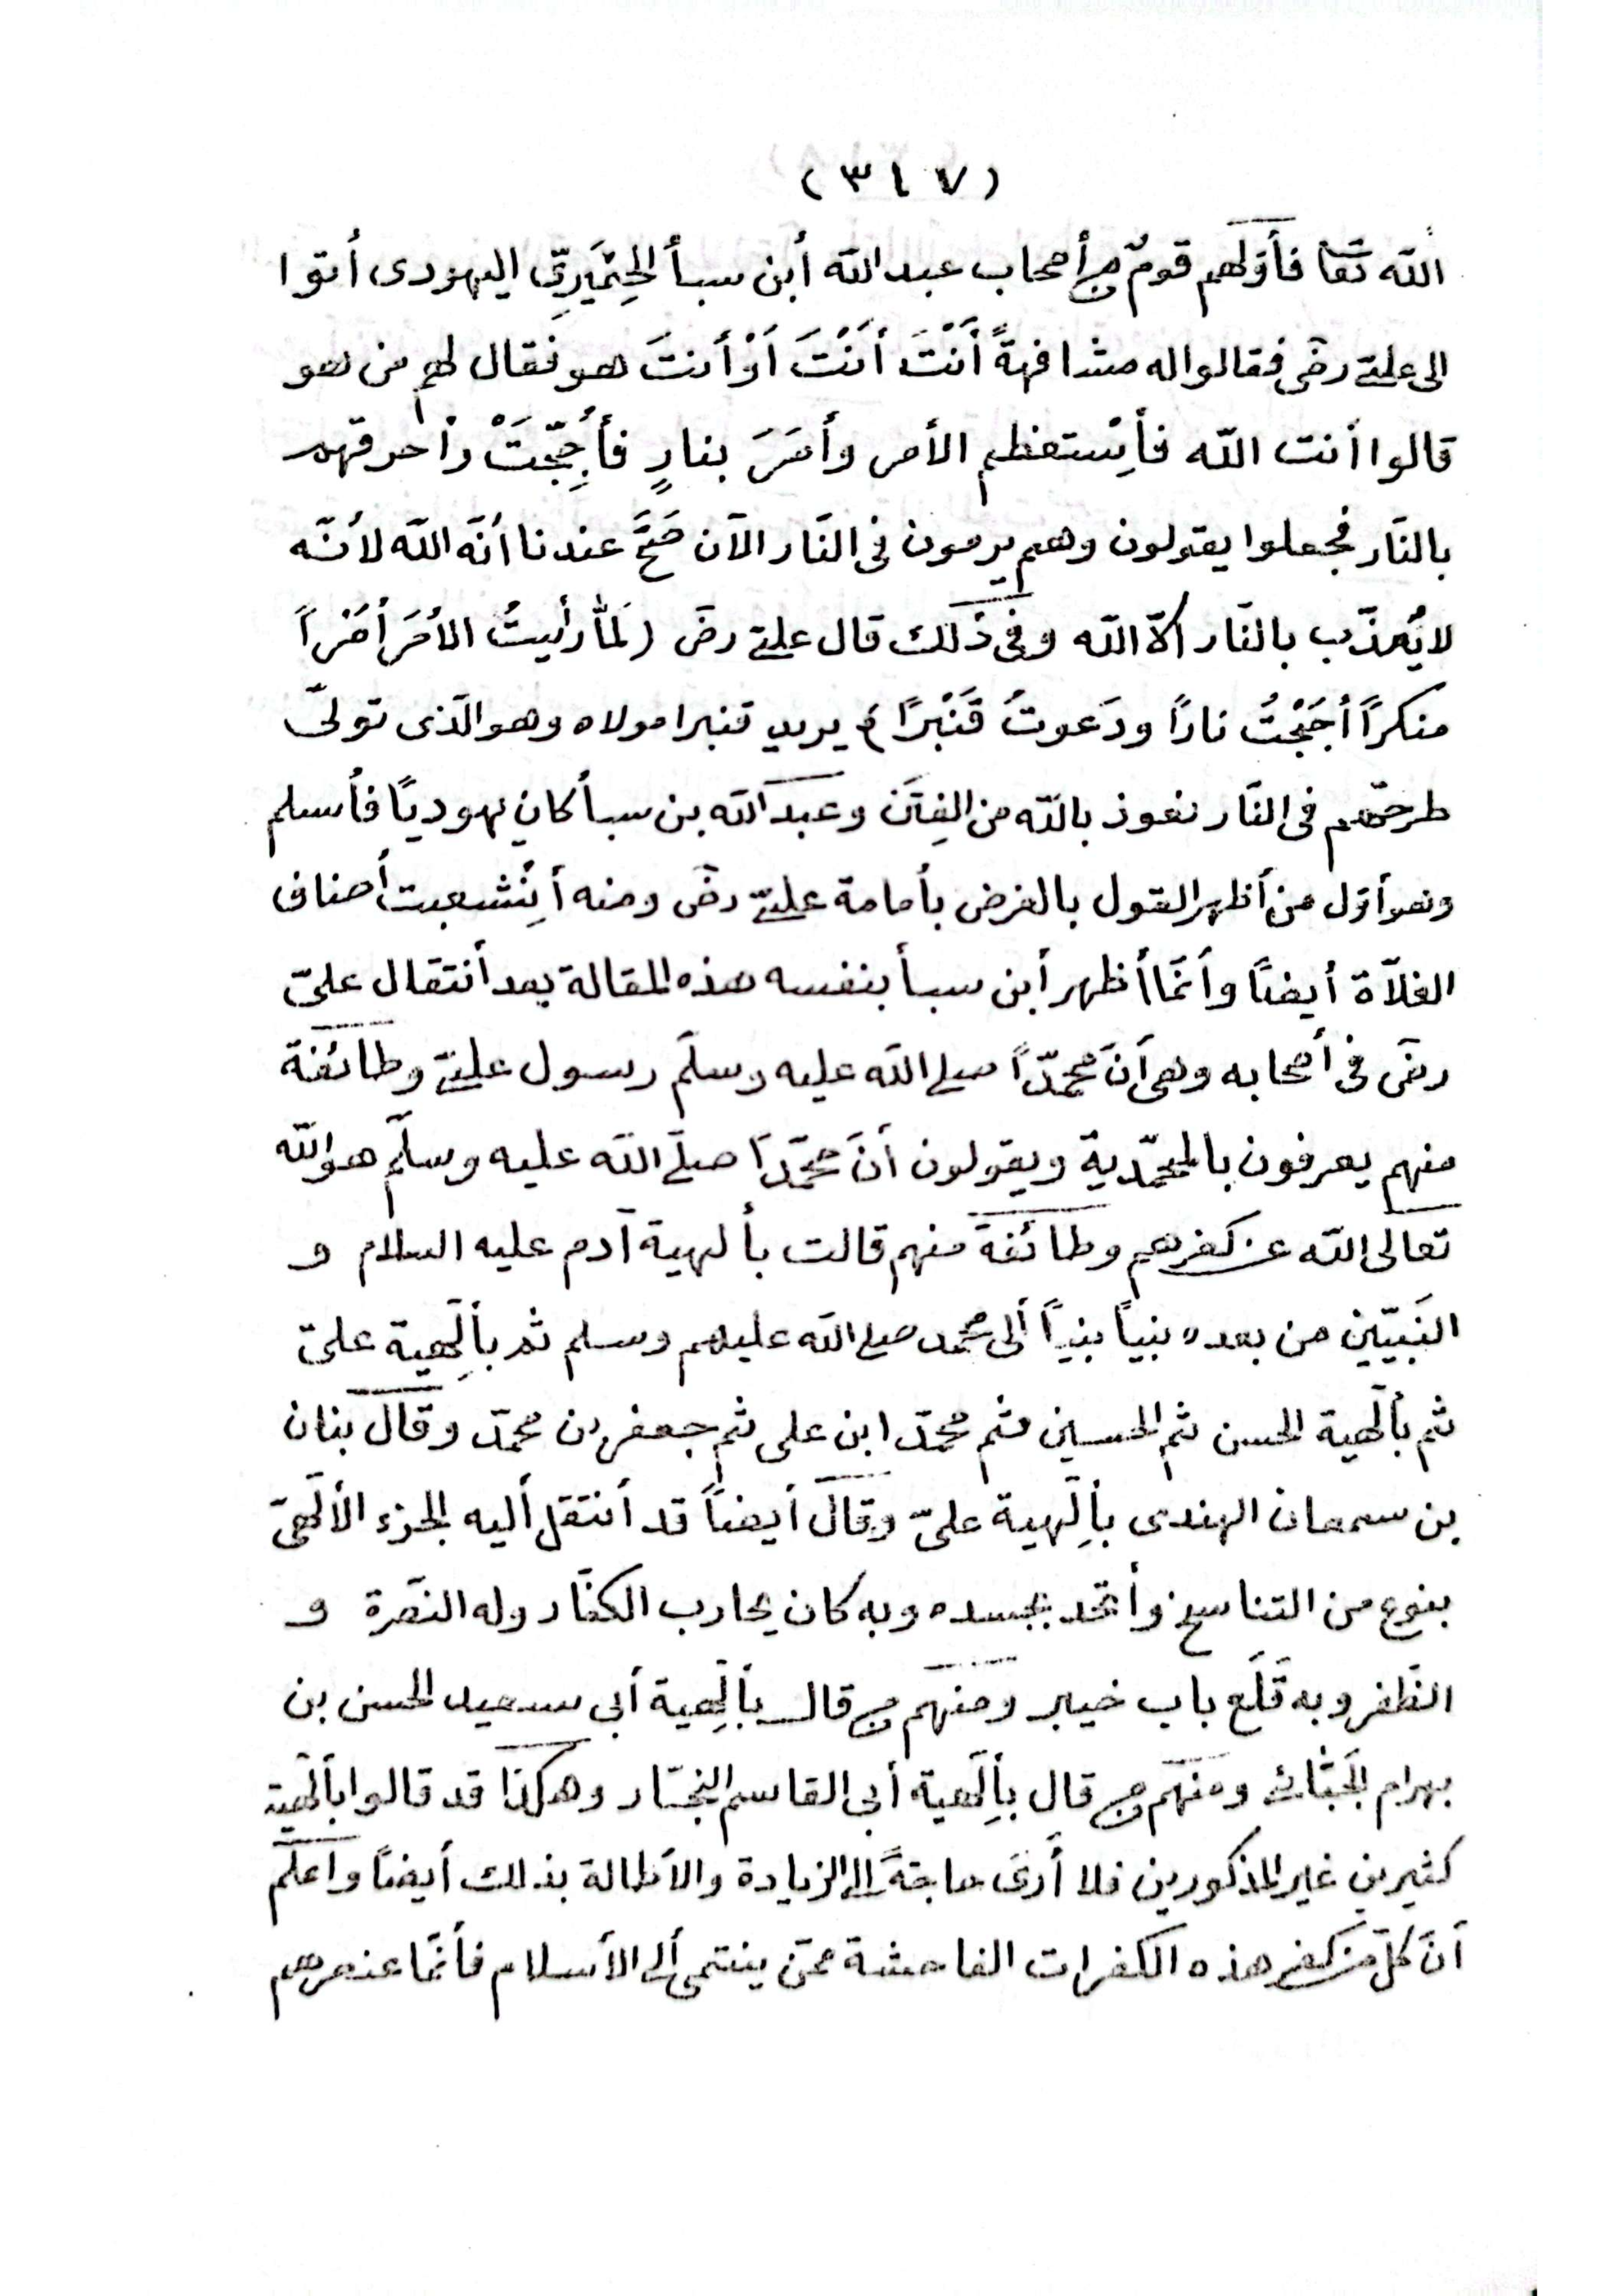 (٣٤٧)
الله تعا فأوّلهم قومٌ من أصحاب عبد الله أبن سبأ الحِمْيَرِيّ اليهودى أتوا
الى علىّ رضى فقالوا له مشافهةً أَنْتَ أَنْتَ أَوْ أنتَ هو فقال لهم من هو
قالوا أنت الله فأِسْتعظم الأمر وأمَرَ بنارٍ فأُجِّجَتْ وأحرقهم
بالنّار فجعلوا يقولون وهم يرمون فى النّار الآن صَحَّ عندنا أنّه الله لأنّه
لا يُعذّب بالنّار الاّ الله وفى ذلك قال علىّ رضى (لَمّا رأيتُ الأمْرَ أمْراً
منكراً أجَّجْتُ ناراً ودَعوتُ قَنْبَرًا) يريد قنبرا مولاه وهو الّذى تولّى
طرحهم فى النّار نعوذ بالله من الفِتَن وعبد الله بن سبأ كان يهوديًا فأسلم
وهو أوّل من أظهر القول بالفرض بأمامة علىّ رضى ومنه أِنْشعبت أصناف
الغلاّة أيضًا وأنّما أظهر أبن سبأ بنفسه هذه المقالة بعد أنتقال علىّ
رضى فى أصحابه وهى أنّ محمّداً صلى الله عليه وسلّم رسول علىّ وطائفة
منهم يعرفون بالمحمّدية ويقولون أنّ محمّداً صلى الله عليه وسلّم هو الله
تعالى الله عن كفرهم وطائفة منهم قالت بألهية آدم عليه السلام و
النّبيّين من بعده بنياً بنياً ألى محمد صلى الله عليهم وسلم ثم بألَهية علىّ
ثم بألَهية الحسن ثم الحسين ثم محمّد ابن على ثم جعفر بن محمّد وقال بنان
بن سمعان الهندى بأِلَهية علىّ وقال أيضاً قد أنتقل أليه الجزء الألَهىّ
بنوع من التناسخ وأتّحد بجسده وبه كان يحارب الكفّار وله النّصرة و
الظّفر وبه قَلَع باب خيبر ومنهم من قال بألَهية أبى سعيد الحسن بن
بهرام ومنهم من قال بأِلَهية أبى القاسم النجّار وهكذا قد قالوا بألَهية
كثيرين غير المذكورين فلا أرى حاجةً الى الزيادة والأطالة بذلك أيضاً واعلم
أنّ كلّ من كفر هذه الكفرات الفاحشة ممّن ينتمى ألى الأسلام فأنّما عنصرهم